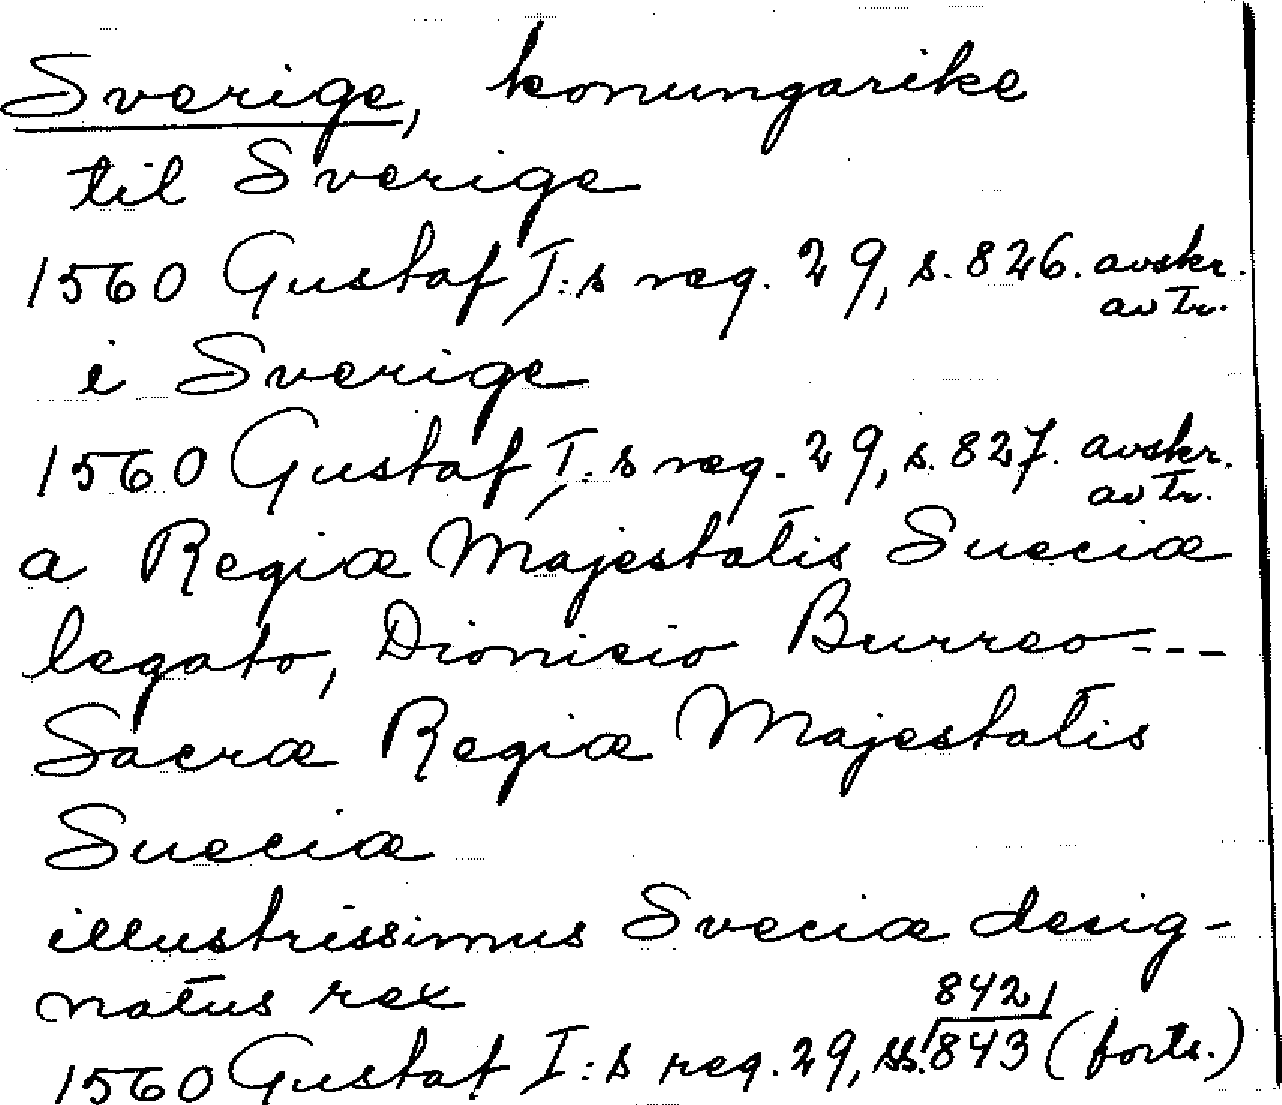 Sverige, konungarike
til Sverige
1560 Gustaf I:s reg. 29, s. 826. avskr. av tr.
i Sverige
1560 Gustaf I:s reg. 29, s. 827. avskr. av tr.
a Regiæ Majestatis Sueciæ
legato, Dionicio Burreo ---
Sacræ Regiæ Majestatis
Sueciæ
illustrissimus Sveciæ desig-
natus rex
1560 Gustaf I:s reg. 29, ss. 842/843 (forts.)